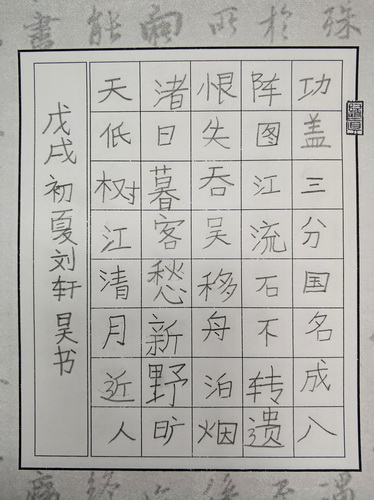 功盖三分国名成八
阵图江流石不转遗
恨失吞吴移舟泊烟
渚日暮客愁新野旷
天低树江清月近人
戊戌初夏刘轩昊书